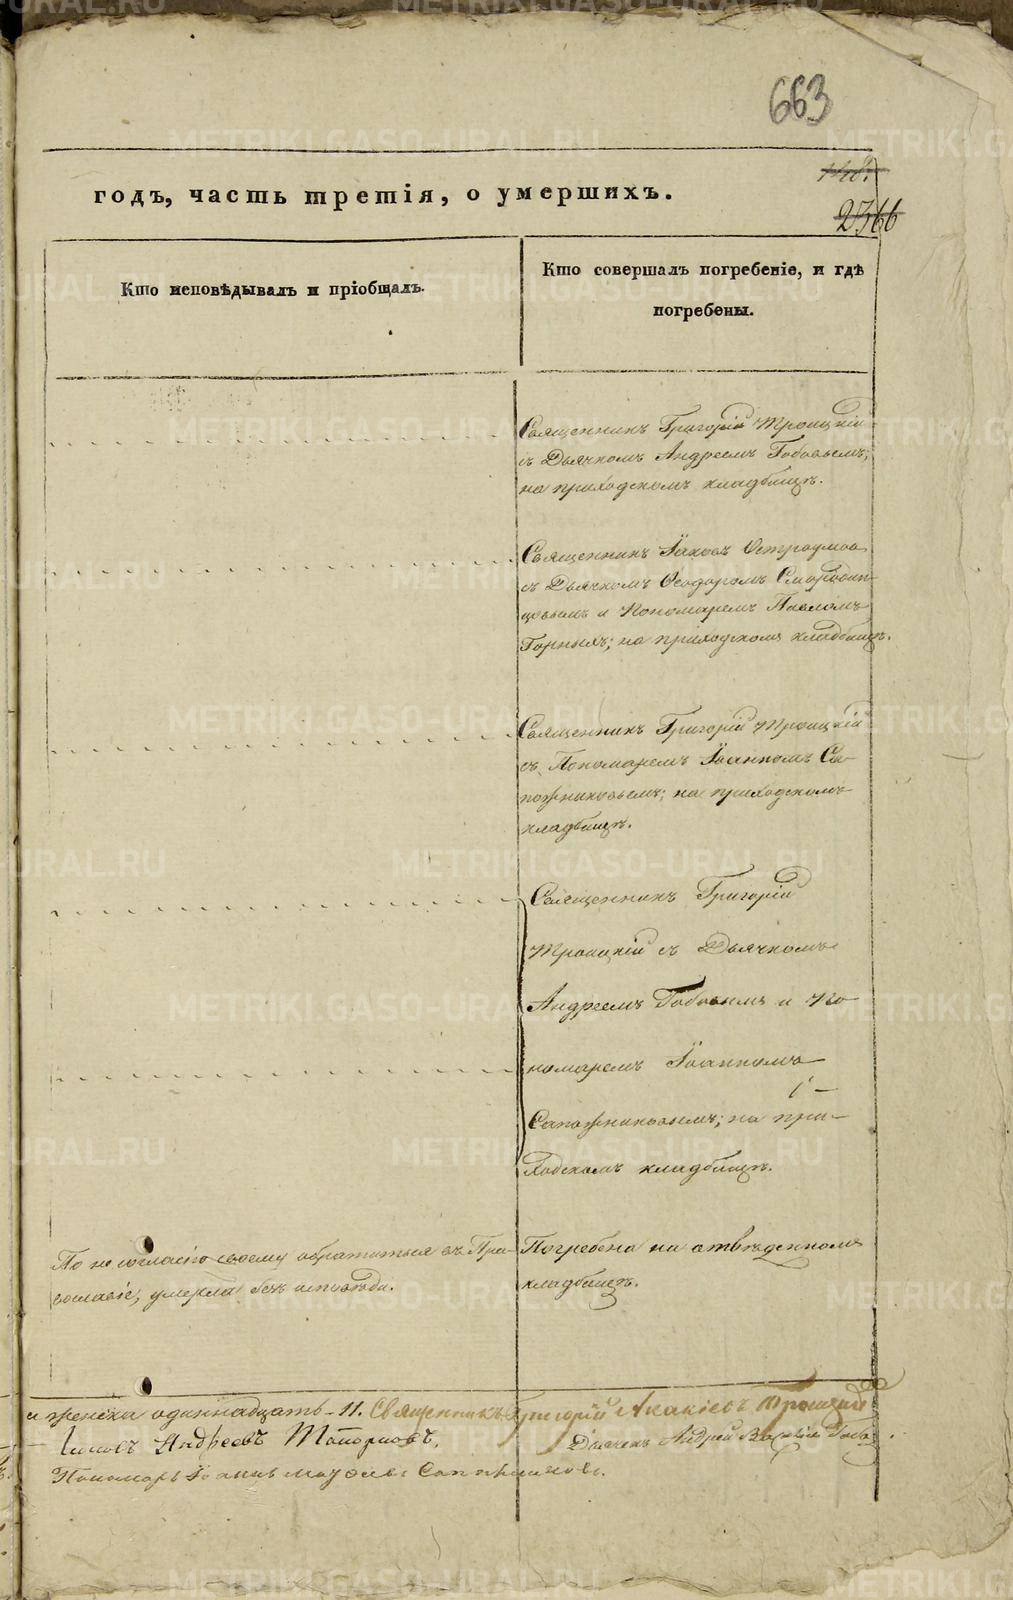 663
годъ, часть третія, о умершихъ.
2366
Кто исповѣдывалъ и пріобщалъ.
Кто совершалъ погребеніе, и гдѣ
погребены.
Священникъ Григорій Троицкій
съ Дьячкомъ Андреемъ Бобовымъ;
на приходскомъ кладбищѣ.
Священникъ Іаковъ Остроумов
съ Дьячкомъ Ѳеодоромъ Смородин-
цовымъ и Пономаремъ Павломъ
Горныхъ; на приходскомъ кладбищѣ.
Священникъ Григорій Троицкій
съ Пономаремъ Іоанномъ Са-
пожниковымъ; на приходскомъ
кладбищѣ.
Священникъ Григорій
Троицкій съ Дьячкомъ
Андреемъ Бобовымъ и По
номаремъ Іоанномъ
Сапожниковымъ; на при-
ходскомъ кладбищѣ.
По не согласію своему обратиться въ Пра-
вославіе, умерла безъ исповѣди.
Погребена на отвѣденномъ
кладбищѣ.
и женска одиннадцать - 11. Священникъ Григорій Акакіевъ Троицкій
Андреевъ Топорковъ.
Дьячекъ Андрей
Пономарь Іоаннъ Сапожниковъ.
METRIKI.GASO-URAL.RU